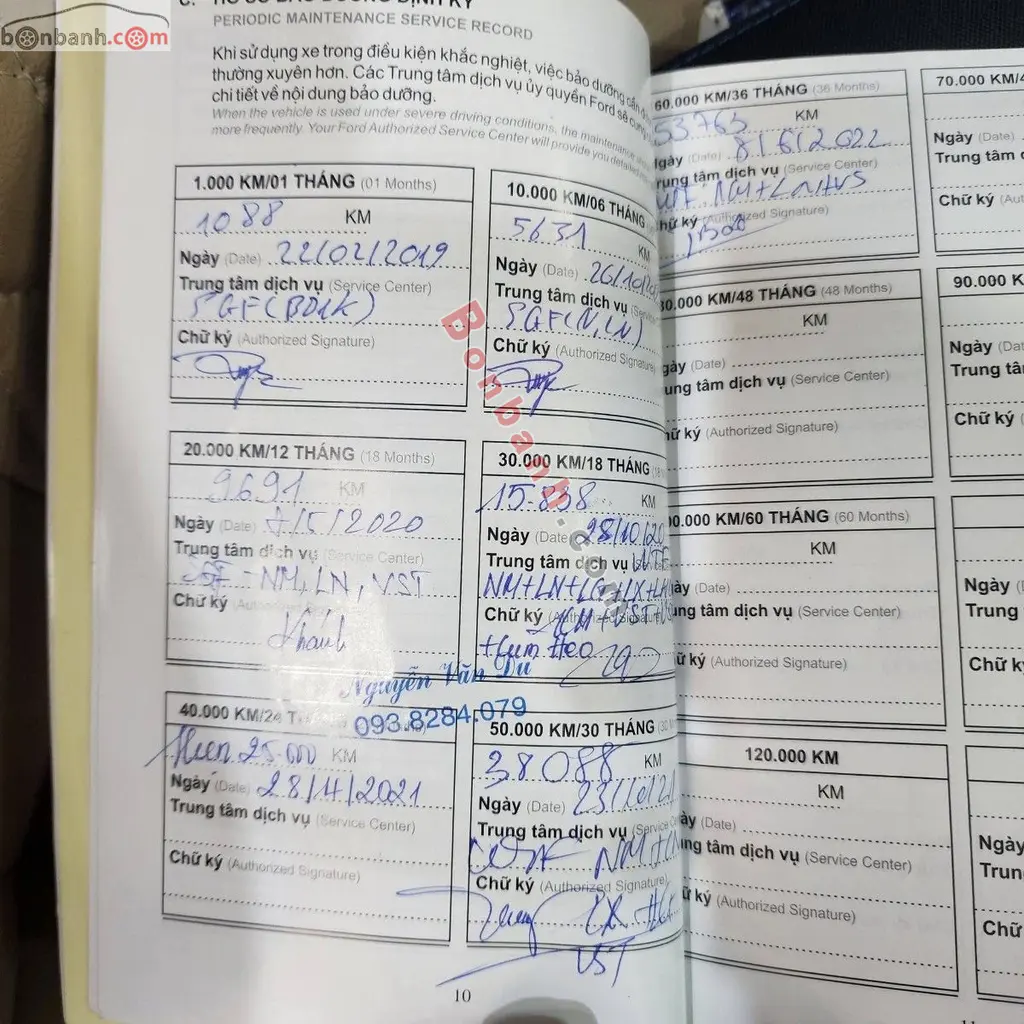 bonbanh.com
PERIODIC MAINTENANCE SERVICE RECORD
Khi sử dụng xe trong điều kiện khắc nghiệt, việc bảo dưỡng cần
thường xuyên hơn. Các Trung tâm dịch vụ ủy quyền Ford sẽ cung
chi tiết về nội dung bảo dưỡng.
When the vehicle is used under severe driving conditions, the maintenance
more frequently. Your Ford Authorized Service Center will provide you detailed
1.000 KM/01 THÁNG (01 Months)
1088 KM
Ngày (Date) 22/02/2019
Trung tâm dịch vụ (Service Center)
SGF (BD1K)
Chữ ký (Authorized Signature)
10.000 KM/06 THÁNG
5631 KM
Ngày (Date) 26/10/20
Trung tâm dịch vụ
SGF (N, LN)
Chữ ký (Authorized Signature)
20.000 KM/12 THÁNG (18 Months)
9691 KM
Ngày (Date) 7/5/2020
Trung tâm dịch vụ (Service Center)
NM, LN, VST
Chữ ký
Khánh
30.000 KM/18 THÁNG
15.838 KM
Ngày (Date) 28/10/20
Trung tâm dịch vụ
NM+LN+LG+LX+LH
Chữ ký (Authorized Signature)
Nguyễn Văn Du
093.8284.079
40.000 KM/24
25.000 KM
Ngày (Date) 28/4/2021
Trung tâm dịch vụ (Service Center)
Chữ ký (Authorized Signature)
50.000 KM/30 THÁNG
38088 KM
Ngày (Date) 23/10/21
Trung tâm dịch vụ
NM+LN
Chữ ký (Authorized Signature)
VST
10
60.000 KM/36 THÁNG (36 Months)
53765 KM
(Date) 8/6/2022
(Service Center)
NM+LN+VS
(Authorized Signature)
KM/48 THÁNG (48 Months)
KM
(Date)
dịch vụ (Service Center)
(Authorized Signature)
KM/60 THÁNG (60 Months)
KM
(Date)
tâm dịch vụ (Service Center)
ký (Authorized Signature)
120.000 KM
KM
(Date)
tâm dịch vụ (Service Center)
ký (Authorized Signature)
70.000 KM/
Ngày (Date)
Trung tâm
Chữ ký
90.000 K
Ngày
Trung tâ
Chữ ký
Ngày
Trung
Chữ k
Ngày
Chữ
Bonbanh.com